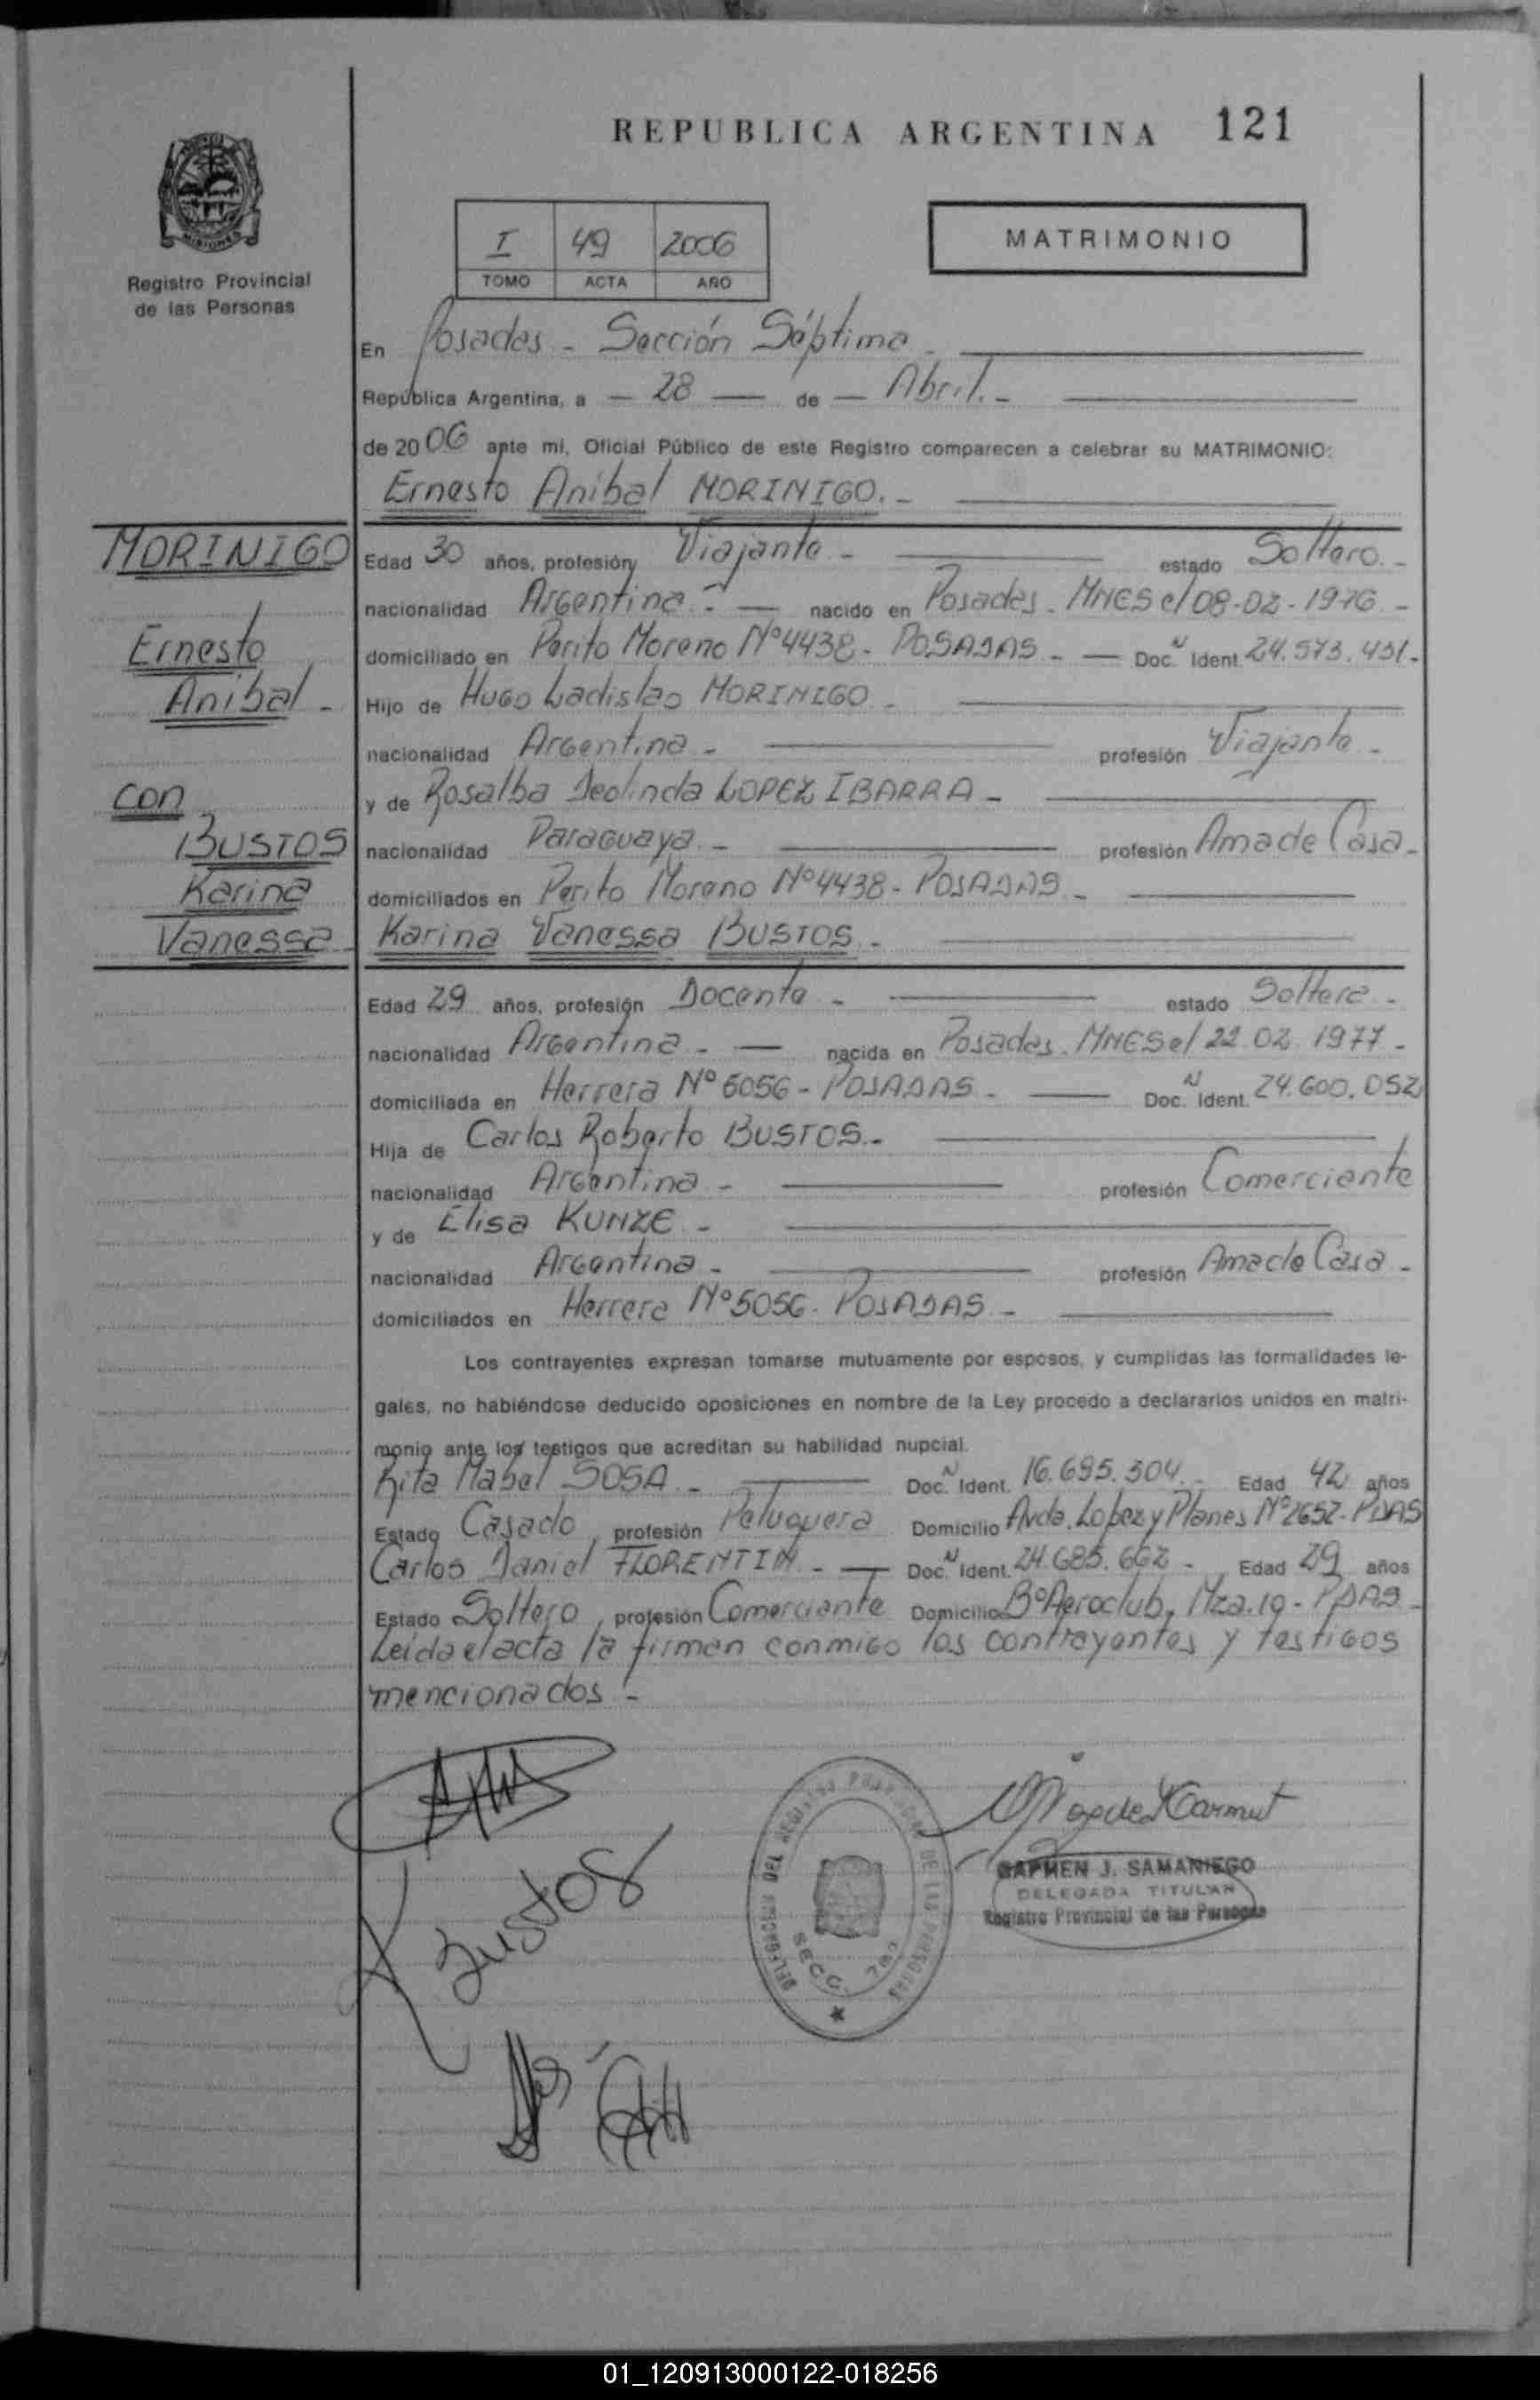 REPUBLICA ARGENTINA 121
MISIONES
Registro Provincial
de las Personas
I 49 2006
TOMO ACTA AÑO
MATRIMONIO
En Posadas - Sección Séptima -
República Argentina, a - 28 - de - Abril. -
de 2006 ante mi, Oficial Público de este Registro comparecen a celebrar su MATRIMONIO:
Ernesto Anibal MORINIGO. -
MORINIGO
Ernesto
Anibal -
con
BUSTOS
Karina
Vanessa -
Edad 30 años, profesión Viajante - estado Soltero. -
nacionalidad Argentina - - nacido en Posadas - MNES el 08-02-1976 -
domiciliado en Perito Moreno Nº 4438 - POSADAS - - Doc. N Ident. 24.573.431 -
Hijo de Hugo Ladislao MORINIGO -
nacionalidad Argentina - profesión Viajante -
y de Rosalba Deolinda LOPEZ IBARRA -
nacionalidad Paraguaya - profesión Ama de Casa -
domiciliados en Perito Moreno Nº 4438 - POSADAS -
Karina Vanessa BUSTOS -
Edad 29 años, profesión Docente - estado Soltera -
nacionalidad Argentina - - nacida en Posadas. MNES el 22 02 1977 -
domiciliada en Herrera Nº 5056 - POSADAS - Doc. N Ident. 24.600.052
Hija de Carlos Roberto BUSTOS. -
nacionalidad Argentina - profesión Comerciante
y de Elisa KUNZE -
nacionalidad Argentina - profesión Ama de Casa -
domiciliados en Herrera Nº 5056 - POSADAS -
Los contrayentes expresan tomarse mutuamente por esposos, y cumplidas las formalidades le-
gales, no habiéndose deducido oposiciones en nombre de la Ley procedo a declararlos unidos en matri-
monio ante los testigos que acreditan su habilidad nupcial.
Rita Mabel SOSA - Doc. N Ident. 16.695.304 - Edad 42 años
Estado Casado, profesión Peluquera Domicilio Avda. Lopez y Planes Nº 2652 - PDAS
Carlos Daniel FLORENTIN - - Doc. N Ident. 24.685.662 - Edad 29 años
Estado Soltero, profesión Comerciante Domicilio Bº Aeroclub, Mza. 19 - PDAS -
Leida el acta la firman conmigo los contrayentes y testigos
mencionados -
Bustos
DELEGACION DEL REGISTRO PROVINCIAL DE LAS PERSONAS
SECC. 7ma
CARMEN J. SAMANIEGO
DELEGADA TITULAR
Registro Provincial de las Personas
01_120913000122-018256